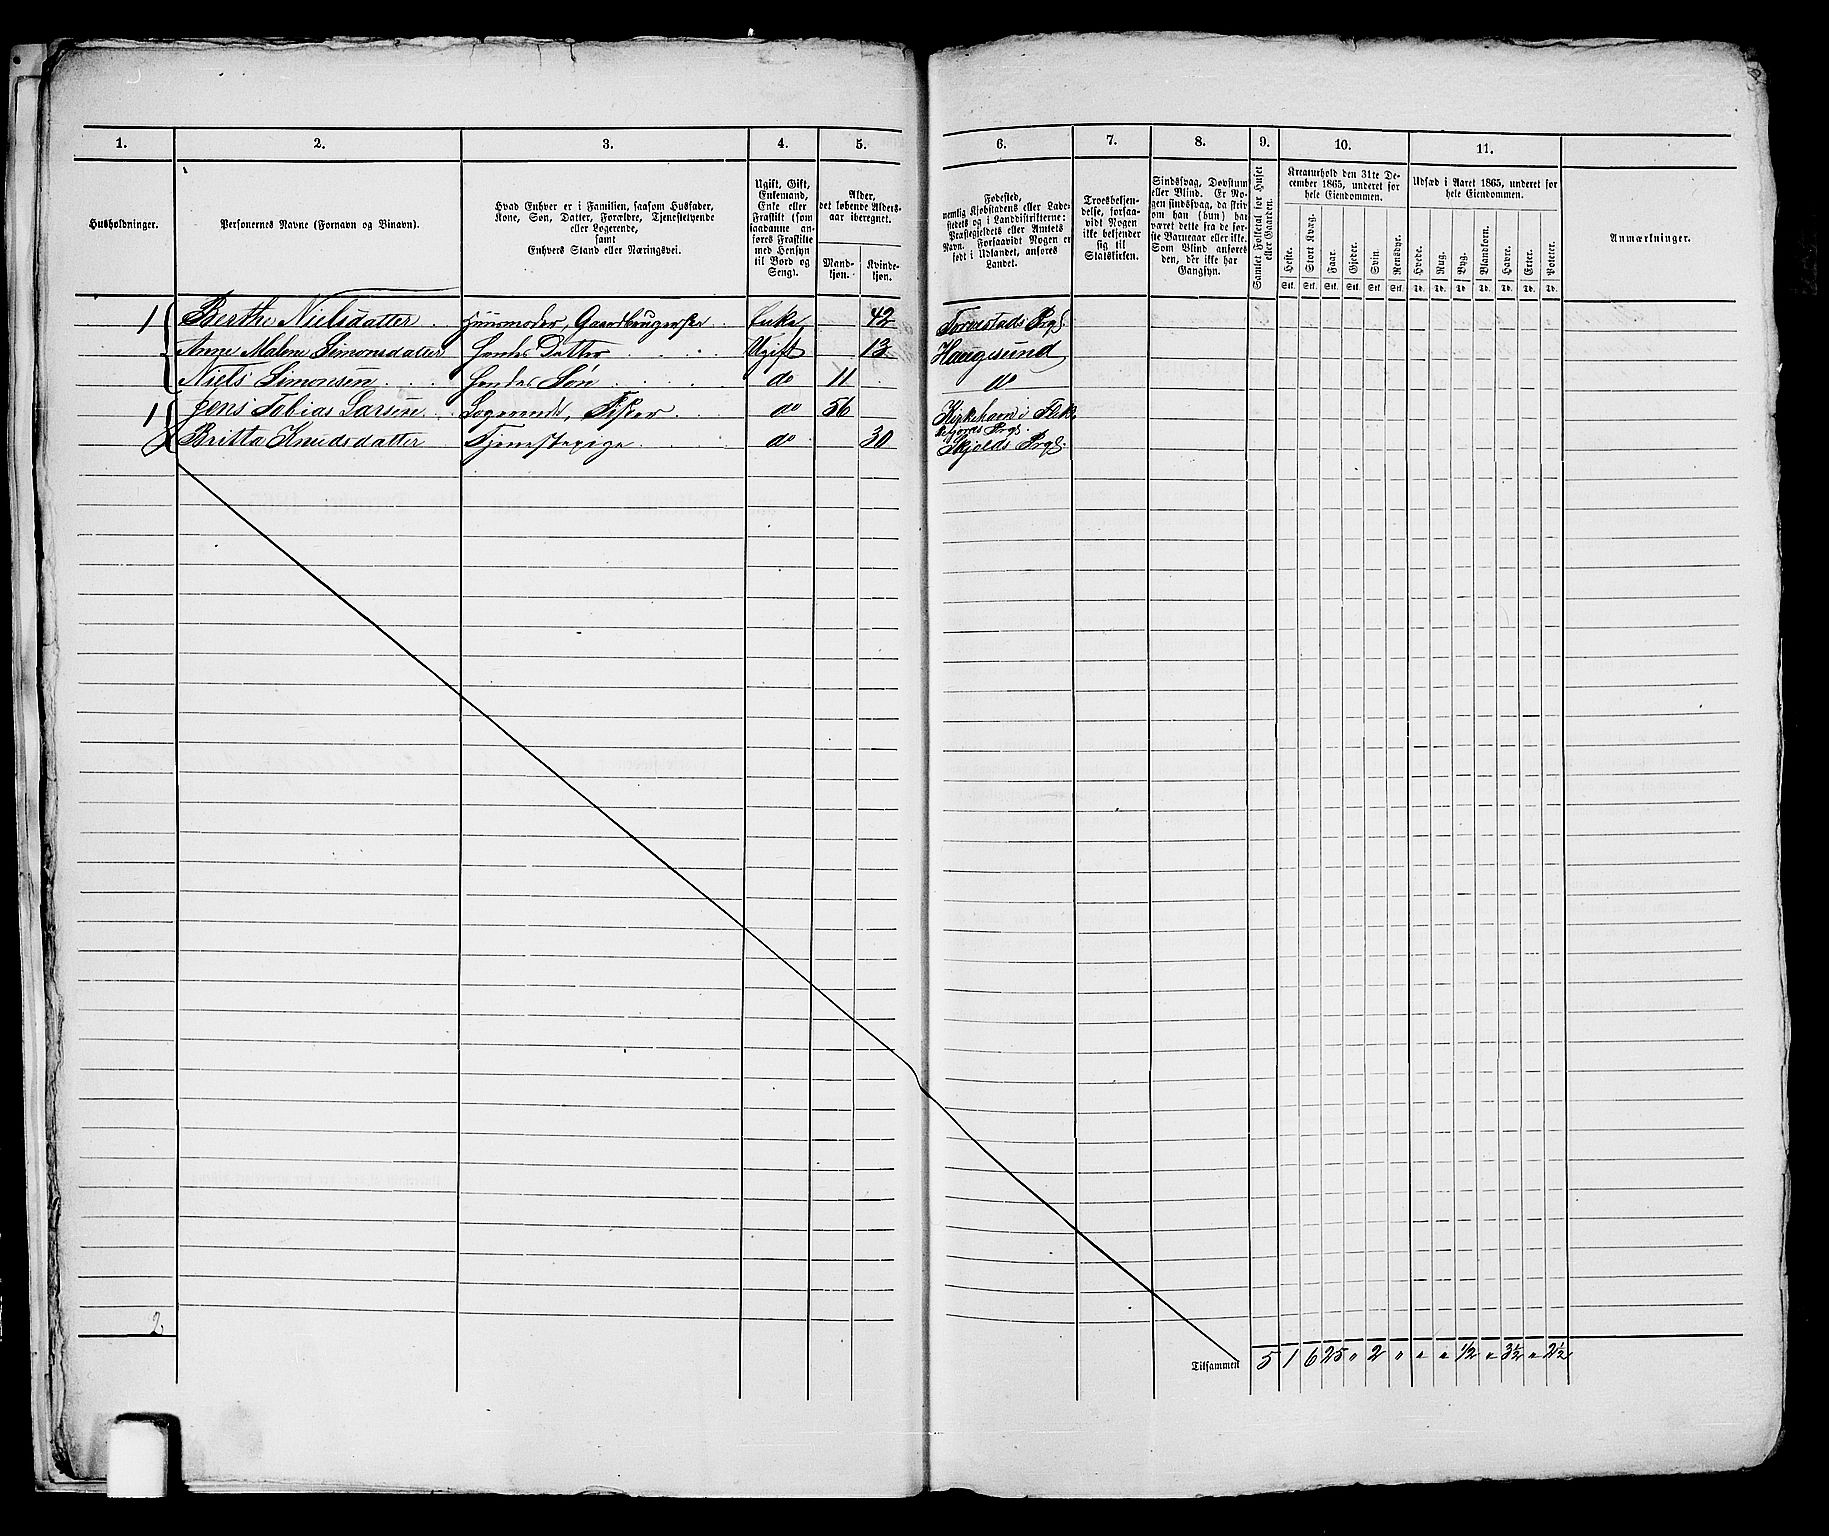 1.
2.
3.
4.
5.
Husholdninger.
Personernes Navne (Fornavn og Binavn).
Hvad Enhver er i Familien, saasom Husfader,
Kone, Søn, Datter, Forældre, Tjenestetyende
eller Logerende,
samt
Enhvers Stand eller Næringsvei.
Ugift, Gift,
Enkemand,
Enke eller
Fraskilt (som
saadanne an-
føres Fraskilte
med Hensyn
til Bord og
Seng).
Alder,
det løbende Alders-
aar iberegnet.
Mand-
kjøn.
Kvinde-
kjøn.
1 Berthe Nielsdatter Huusmoder, Gaardbrugerske Enke 42
Anne Malene Simonsdatter Hendes Datter Ugift 13
Niels Simonsen Hendes Søn do 11
1 Jens Tobias Larsen Logerende, Fisker do 56
Britta Knudsdatter Tjenestepige do 30
2
6.
7.
8.
9.
10.
11.
Fødested,
nemlig Kjøbstadens eller Lade-
stedets og i Landdistrikterne:
Præstegjeldets eller Amtets
Navn. Forsaavidt Nogen er
født i Udlandet, anføres
Landet.
Troesbekjen-
delse, forsaa-
vidt Nogen
ikke bekjender
sig til
Statskirken.
Sindssvag, Døvstum
eller Blind. Er No-
gen sindssvag, da skriv
om han (hun) har
været dette fra de før-
ste Barneaar eller ikke.
Som Blind anføres
den, der ikke har
Gangsyn.
Samlet Folketal for Huset
eller Gaarden.
Kreaturhold den 31te De-
cember 1865, underet for
hele Eiendommen.
Heste.
Stort Kvæg.
Faar.
Gjeder.
Svin
Rensdyr.
Stk. Stk. Stk. Stk. Stk. Stk.
Udsæd i Aaret 1865, underet for
hele Eiendommen.
Hvede.
Rug.
Byg.
Blandkorn.
Havre.
Erter.
Poteter.
Td. Td. Td. Td. Td. Td. Td.
Anmærkninger.
Torvestads Prgd.
Haugesund
do
Kirkehavn i Flek
kefjords Prgd.
Skjolds Prgd.
Tilsammen 5 1 6 25 " 2 " " " 1/2 " 3 1/2 " 2 1/2